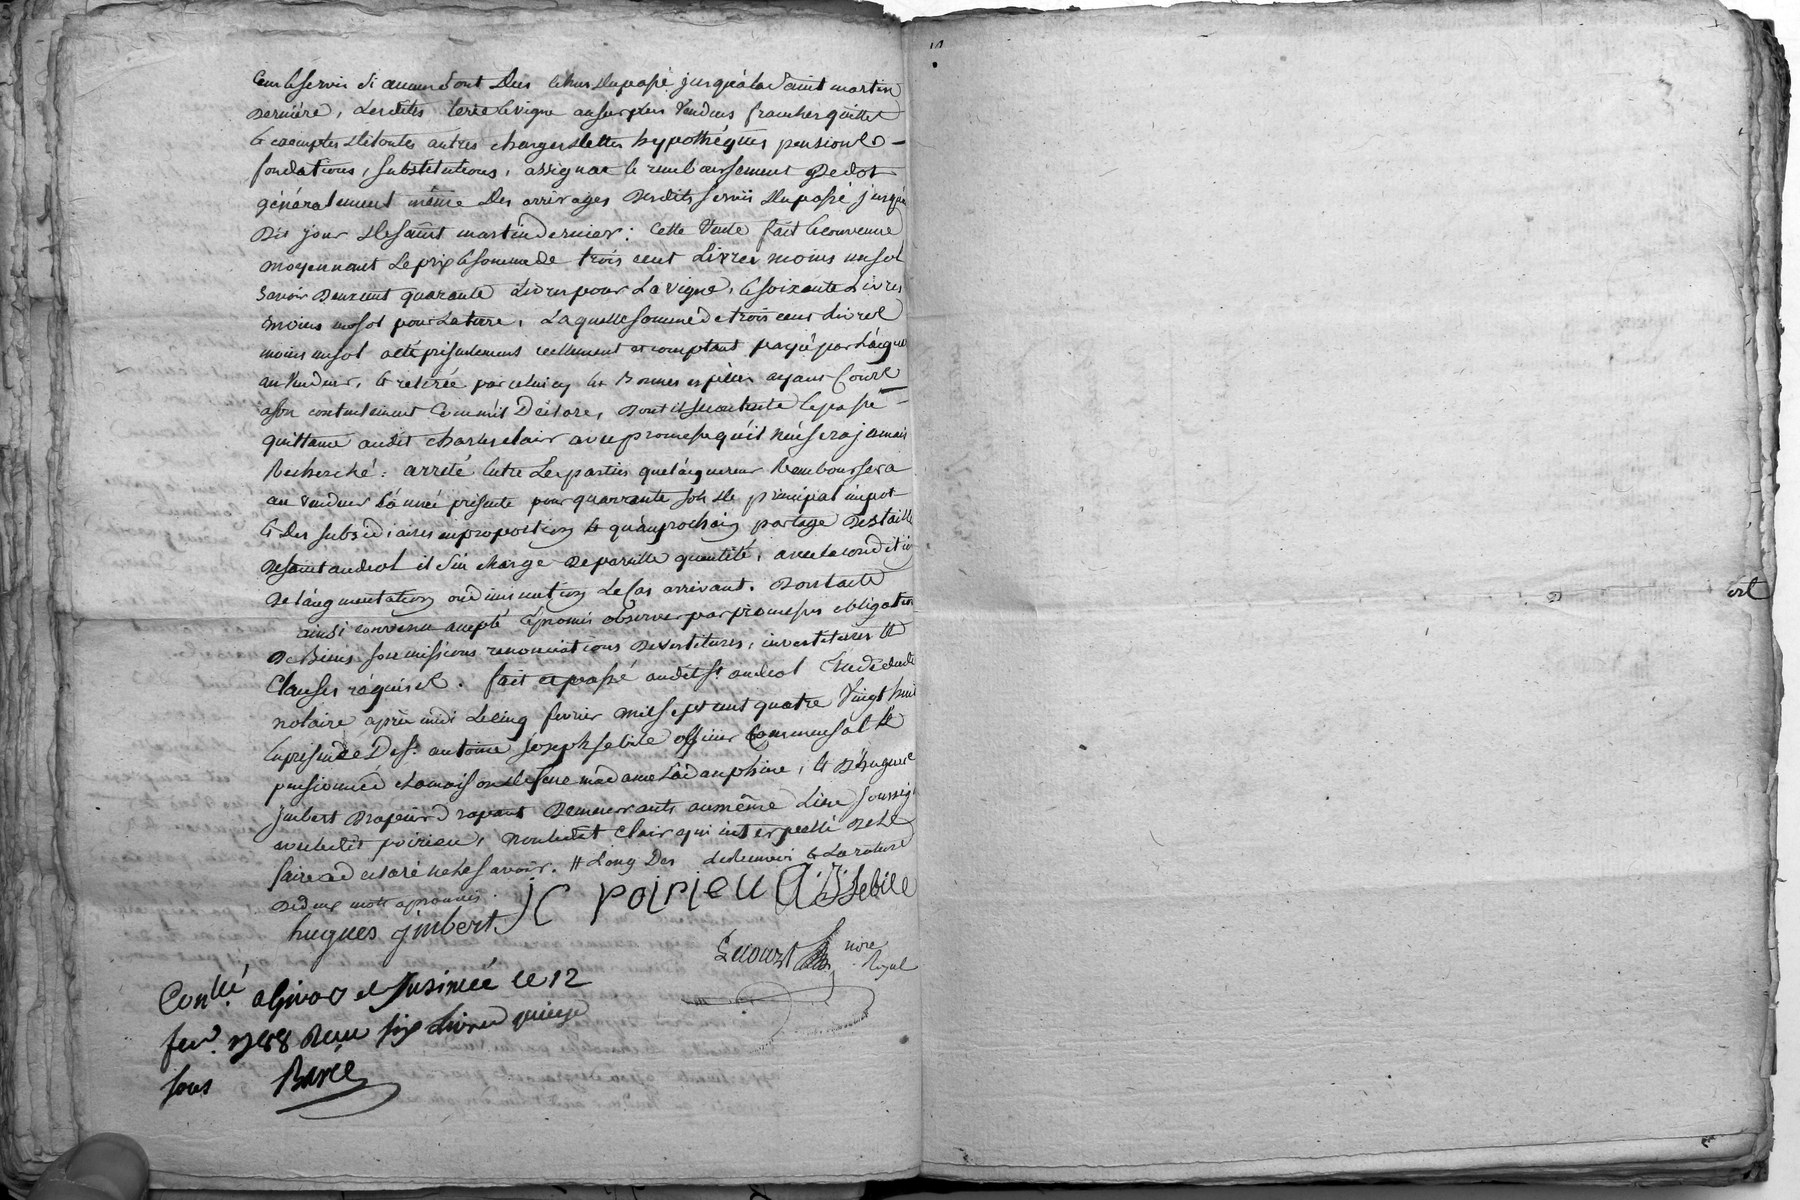 cens et servis si aucun sont dus échus du passé jusqu'à la saint martin
dernière, lesdites terre et vigne au surplus vendues franches quittes
et exemptes de toutes autres charges dettes hypothéques pensions -
fondations, substitutions, assignat et remboursement de dot
généralement même des arrérages desdits servis du passé jusqu'au
dit jour de saint martin dernier: cette vente fait et convenue
moyennant le prix et somme de trois cent livres moins un sol
savoir deux cent quarante livres pour la vigne, et soixante livres
moins un sol pour la terre, laquelle somme de trois cens livres
moins un sol a été présentement reellement et comptant payé par l'acquer
au vendeur, et retirée par celui cy en bonnes espèces ayans cours
a son contentement comme il déclare, dont il se contente et passe -
quittance audit charles clair avec promesse qu'il n'en sera jamais
recherché: arrêté entre les parties que l'acquereur remboursera
au vendeur l'année présente pour quarante sols de principal impot
et des subsidiaires en proportion et qu'au prochain partage des tailles
de saint andeol il s'en charge de pareille quantité, avec la condition
de l'augmentation ou diminution le cas arrivant. Dont acte
ainsi convenu accepté et promis observer par promesses obligation
de biens soumissions renonciations devestitures, investitures et
clauses réquises. fait et passé audit St. andeol Etude dudit
notaire après midi le cinq fevrier mil sept cent quatre vingt huit
en présence de Sr. antoine joseph sebile officier commensal et
pensionné de la maison de feue madame la dauphine, et d'hugues
jmbert drapeur drapant demeurants au même lieu soussig
avec ledit poirieu, non ledit clair qui interpellé de le
faire a declaré ne le savoir. # Long des et la rature
de deux mots aprouvés.
jc poirieu A: J: Sebile
hugues jmbert
nore
Royal
Conllé. a Givors et Insinuée le 12
fevr. 1788 Recu six livres quinze
sous Barcel
ort